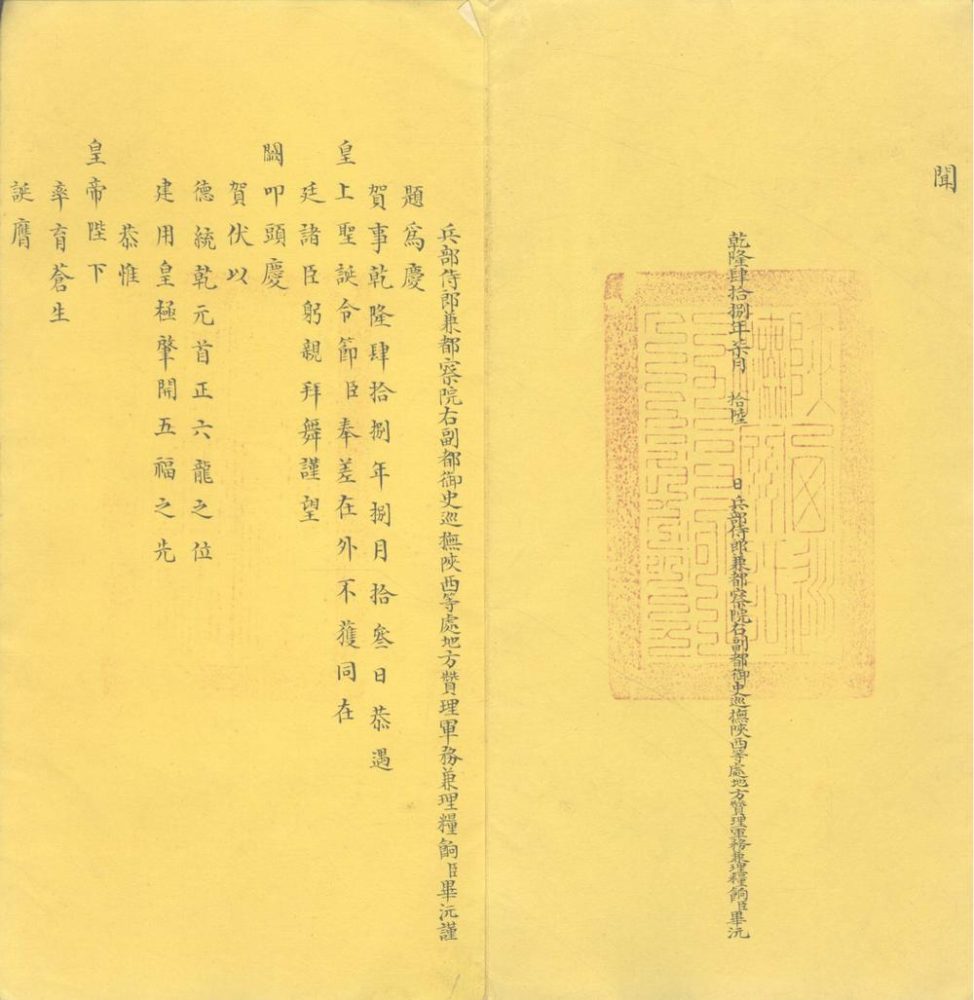 聞
乾隆肆拾捌年柒月 拾陸 日兵部侍郎兼都察院右副都御史巡撫陝西等處地方贊理軍務兼理糧餉臣畢沅
兵部侍郎兼都察院右副都御史巡撫陝西等處地方贊理軍務兼理糧餉臣畢沅謹
題爲慶
賀事乾隆肆拾捌年捌月拾叄日恭遇
皇上聖誕令節臣奉差在外不獲同在
廷諸臣躬親拜舞謹望
闕叩頭慶
賀伏以
德統乾元首正六龍之位
建用皇極肇開五福之先
恭惟
皇帝陛下
率育蒼生
誕膺